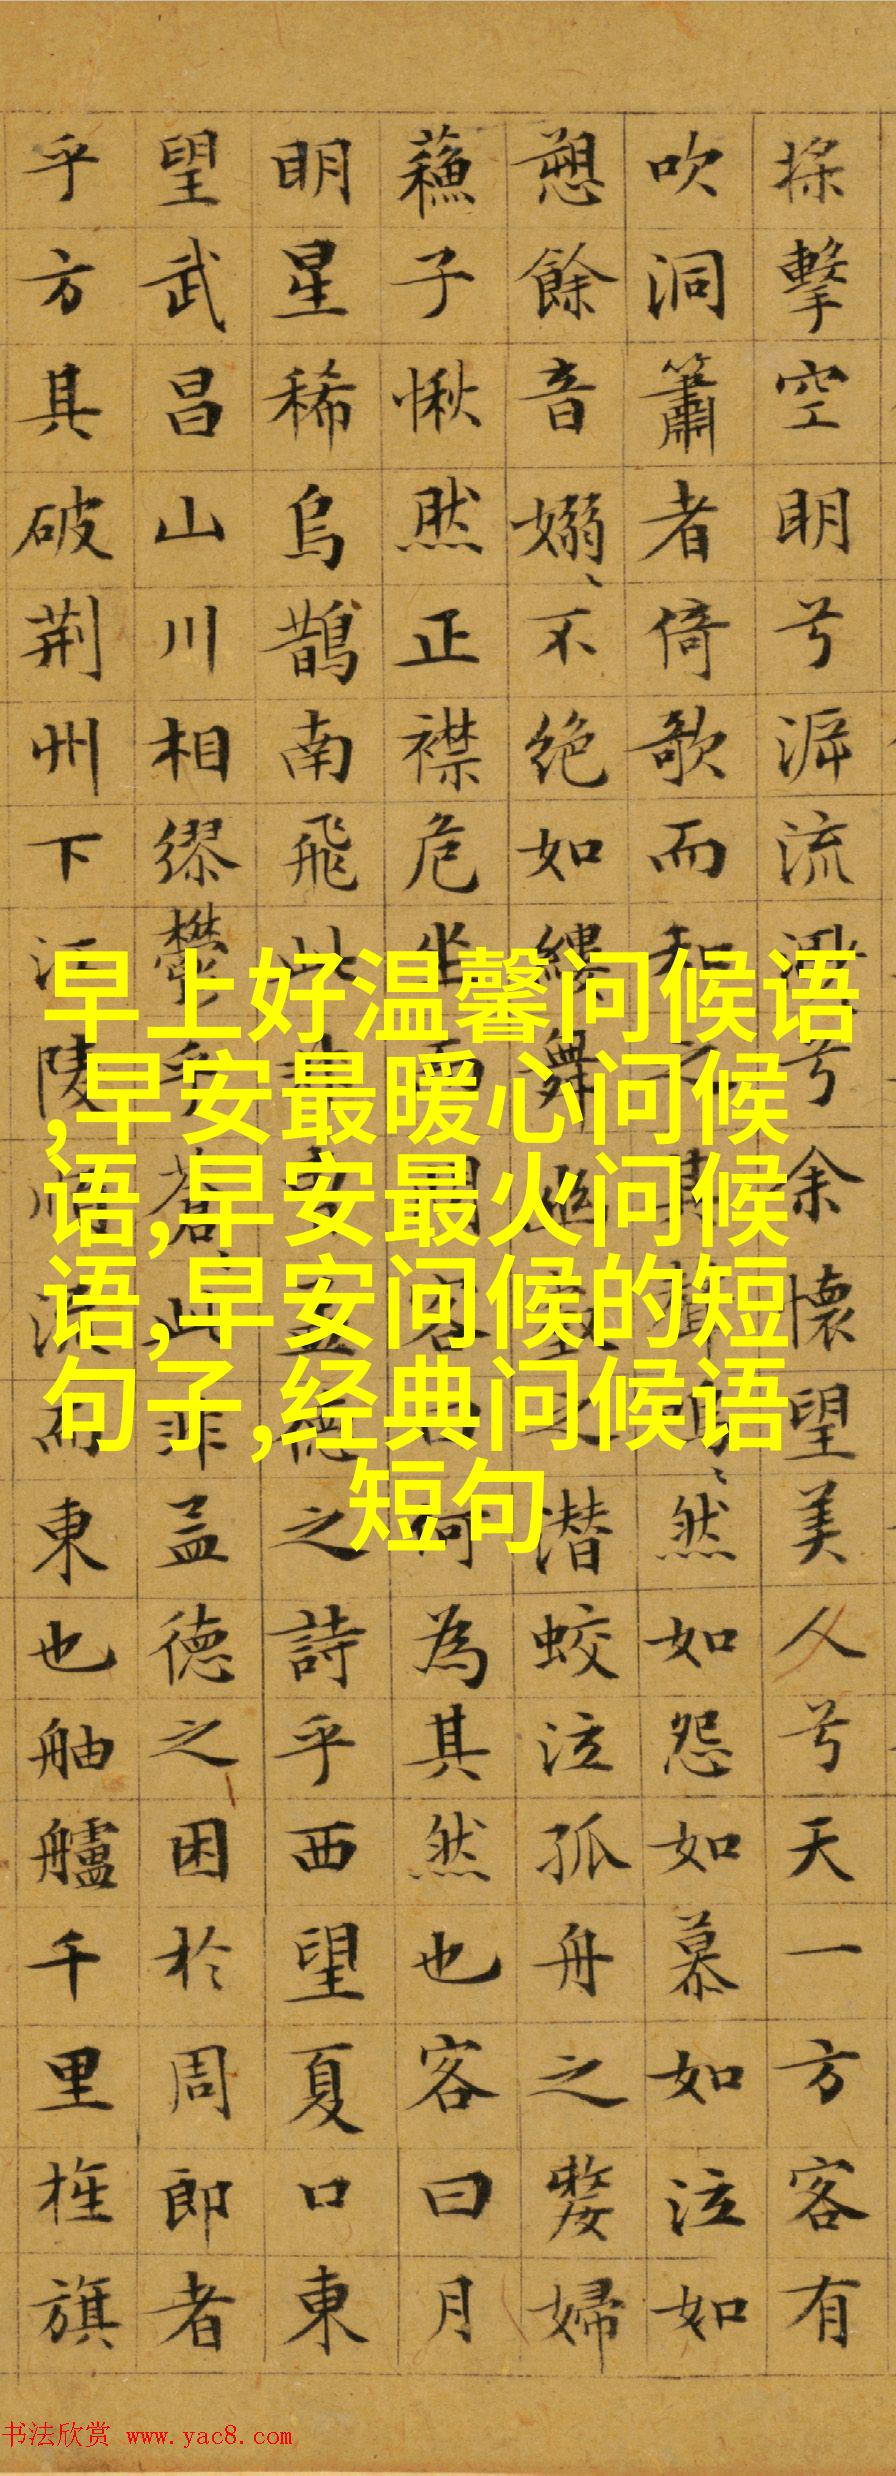 擊空明兮泝流兮余懷望美人兮天一方客有
吹洞簫者倚歌而和之其聲嗚、然如怨如慕如泣如
愬餘音嫋、不絕如縷舞幽壑之潜蛟泣孤舟之嫠婦
蘓子愀然正襟危坐而問客曰何為其然也客曰月
明星稀烏鵲南飛此非曹孟德之詩乎西望夏口東
望武昌山川相繆鬱乎蒼、此非孟德之困於周郎者
乎方其破荆州下江陵順流而東也舳艫千里旌旗
早上好温馨问候语
,早安最暖心问候
语,早安最火问候
语,早安问候的短
句子,经典问候语
短句
书法欣赏 www.yac8.com